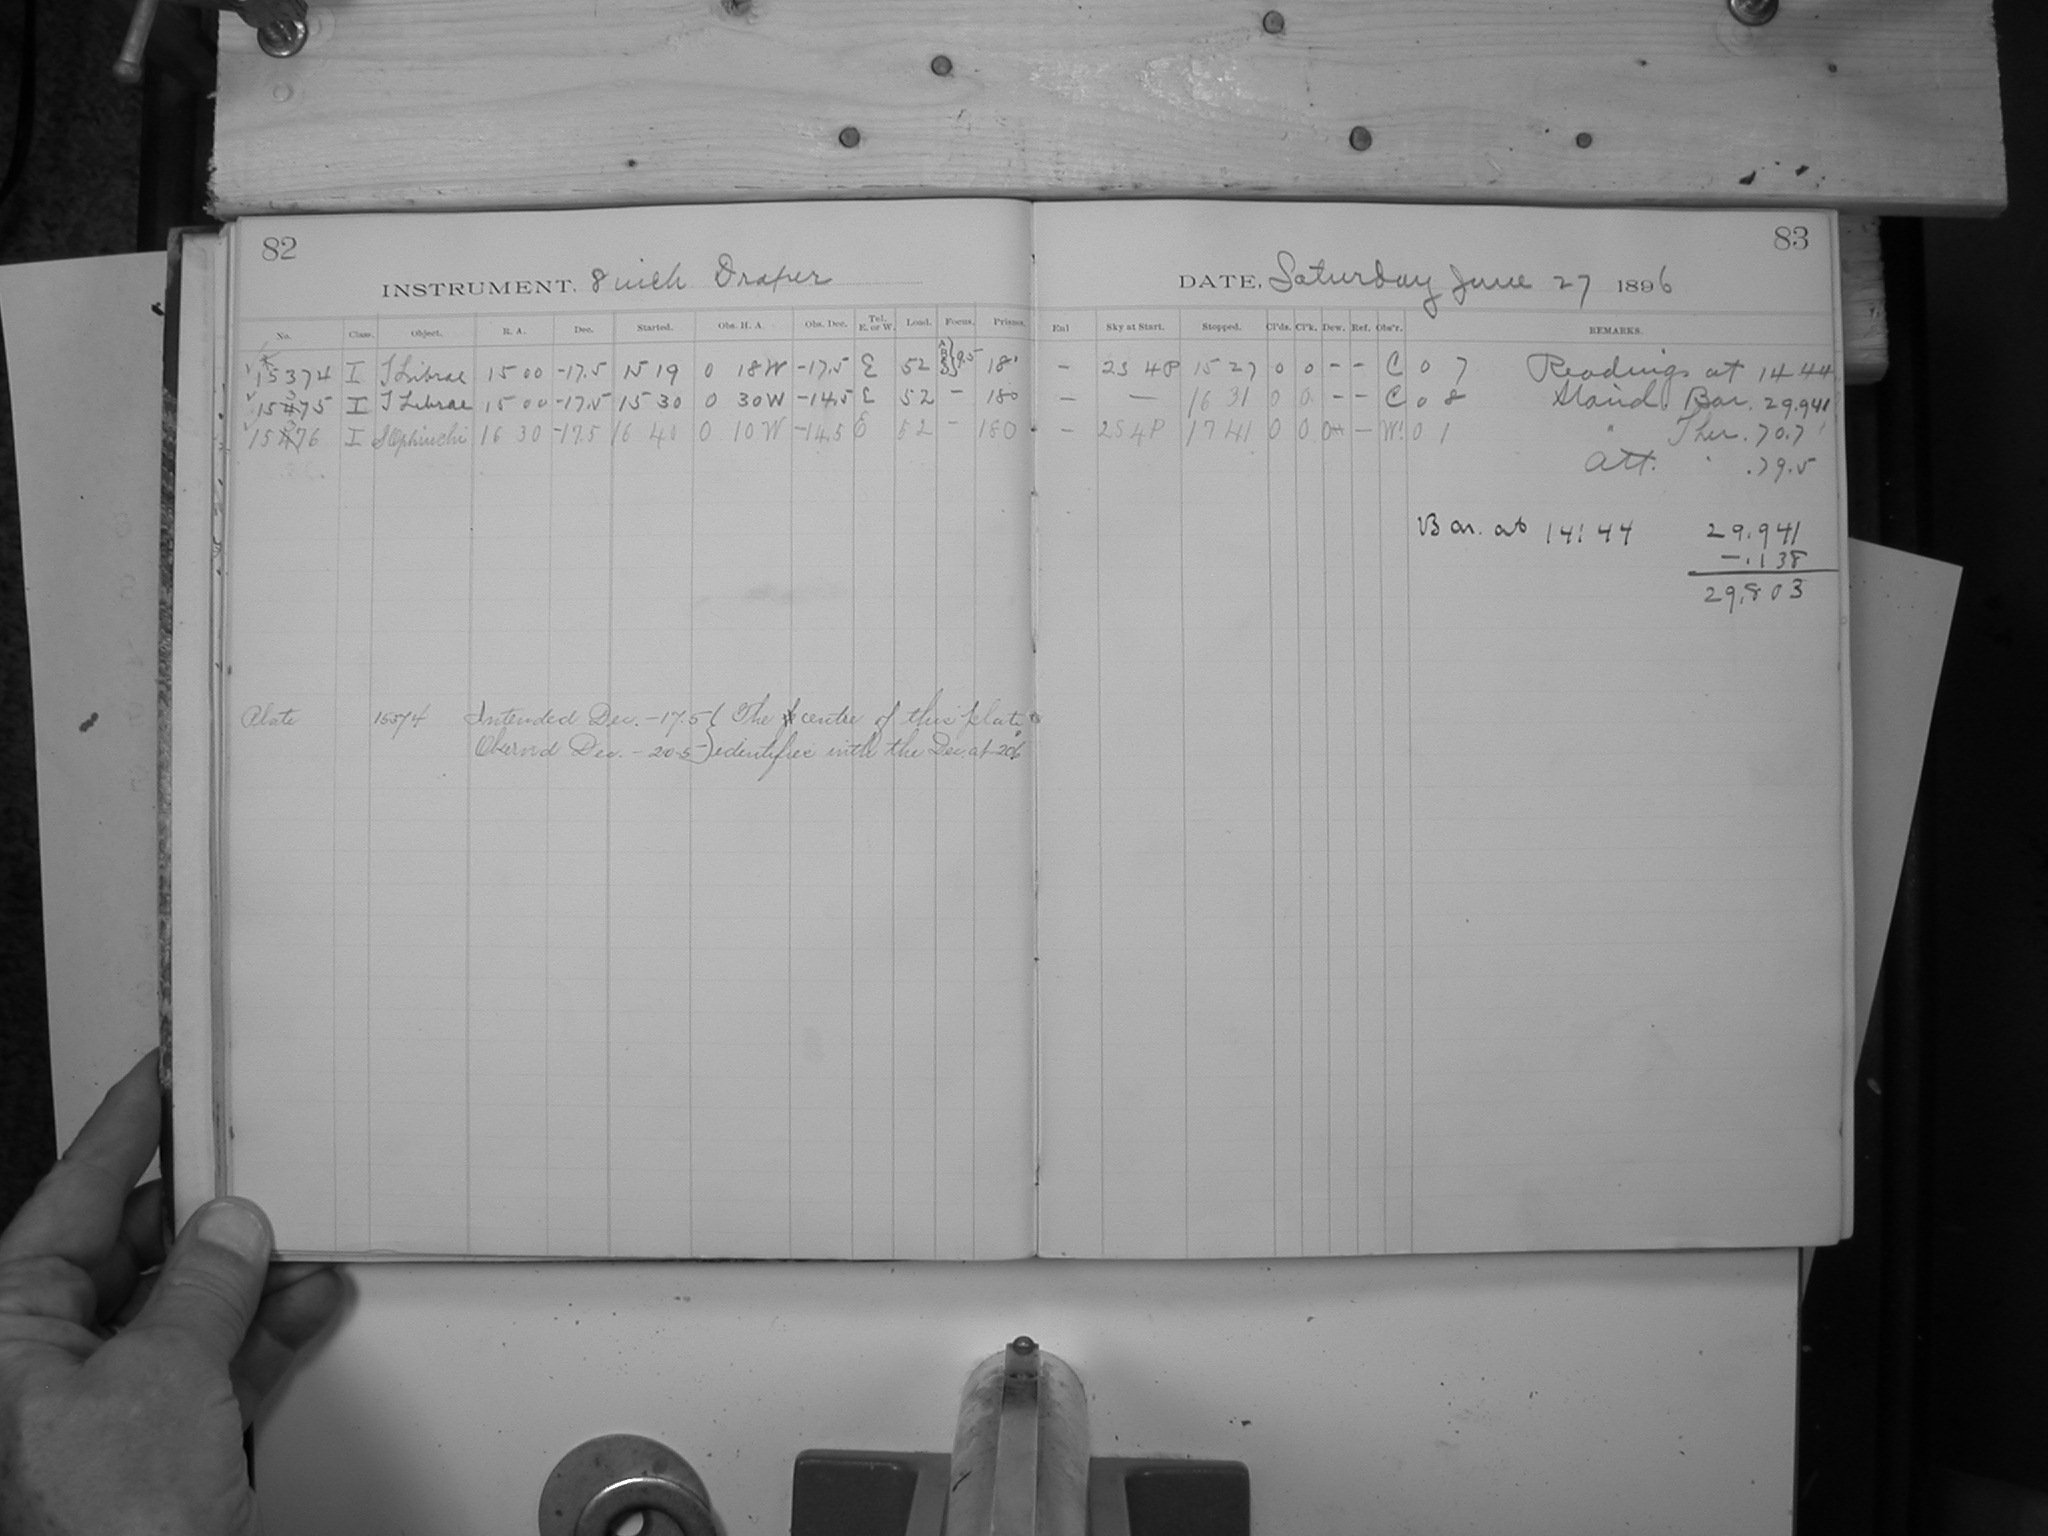 82
INSTRUMENT, 8 inch Draper
No. Class. Object. R. A. Dec. Started. Obs. H. A. Obs. Dec. Tel. E. or W. Load. Focus. Prisms.
15374 I T Librae 15 00 -17.5 15 19 0 18 W -17.5 E 52 9.5 180
15375 I T Librae 15 00 -17.5 15 30 0 30 W -14.5 E 52 - 180
15376 I S Ophiuchi 16 30 -17.5 16 40 0 10 W -14.5 E 52 - 180
Plate 15374 Intended Dec. -17.5 { The centre of this plate
Observd Dec. - 20.5 } identifies with the Dec. at -20.6
83
DATE, Saturday June 27 1896
Exl Sky at Start. Stopped. Cl'ds. Cl'k. Dew. Ref. Obs'r. REMARKS.
- 2S 4P 15 27 0 0 - - C 0 7 Readings at 14 44
- — 16 31 0 0 - - C 0 8 Stand. Bar. 29.941
- 2S 4P 17 41 0 0 - W. 0 1 " Ther. 70.7
Att. " 79.5
Bar. at 14: 44 29.941
-.138
29.803